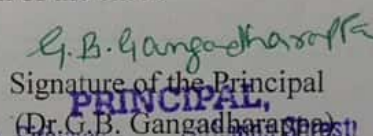 G.B. Gangadharappa
Signature of the Principal
PRINCIPAL,
(Dr.G.B. Gangadharappa)